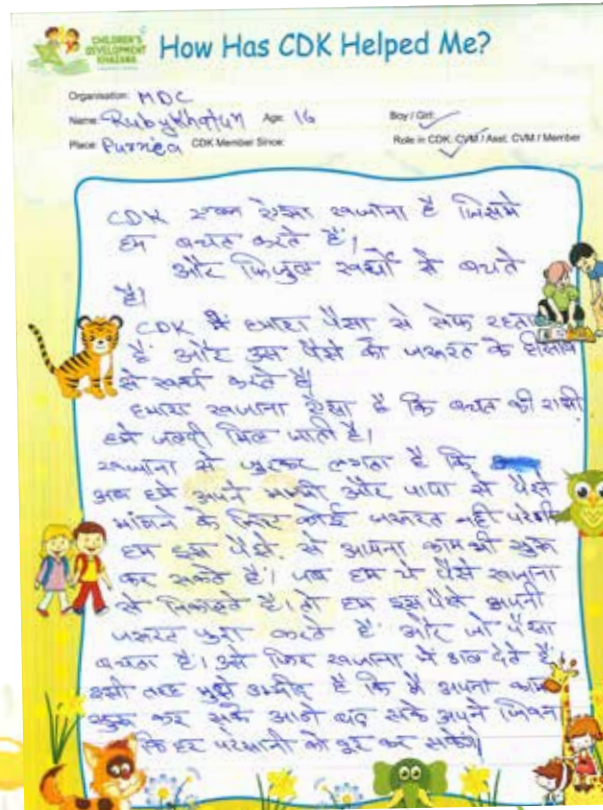 CHILDREN'S
DEVELOPMENT
KHAZANA
How Has CDK Helped Me?
Organisation: MDC
Name: Ruby Khatun Age: 16 Boy / Girl:
Place: Purnea CDK Member Since: Role in CDK: CVM / Asst. CVM / Member
CDK एक ऐसा खजाना है जिसमे
हम बचत करते हैं।
और फिजुल खर्चो से बचते
हैं।
CDK में हमारा पैसा से सेफ रहता
हैं और उस पैसे को जरूरत के हीसाब
से खर्च करते हैं।
हमारा खजाना ऐसा है कि बचत की राशी
हमे जल्दी मिल जाती है।
खजाना से जुरकर लगता है कि
अब हमे अपने मम्मी और पापा से पैसे
मांगने के लिए कोई जरूरत नही परेगी
हम इस पैसे से अपना काम भी शुरू
कर सकते हैं। जब हम ये पैसे खजाना
से निकालते है। तो हम इस पैसे अपनी
जरूरत पुरा करते हैं और जो पैसा
बचता है। उसे फिर खजाना में डाल देते हैं
इसी तरह मुझे उम्मीद है कि मैं अपना काम
शुरू कर सके आगे बढ़ सके अपने जिवन
कि हर परेशानी को दूर कर सकेंगे।